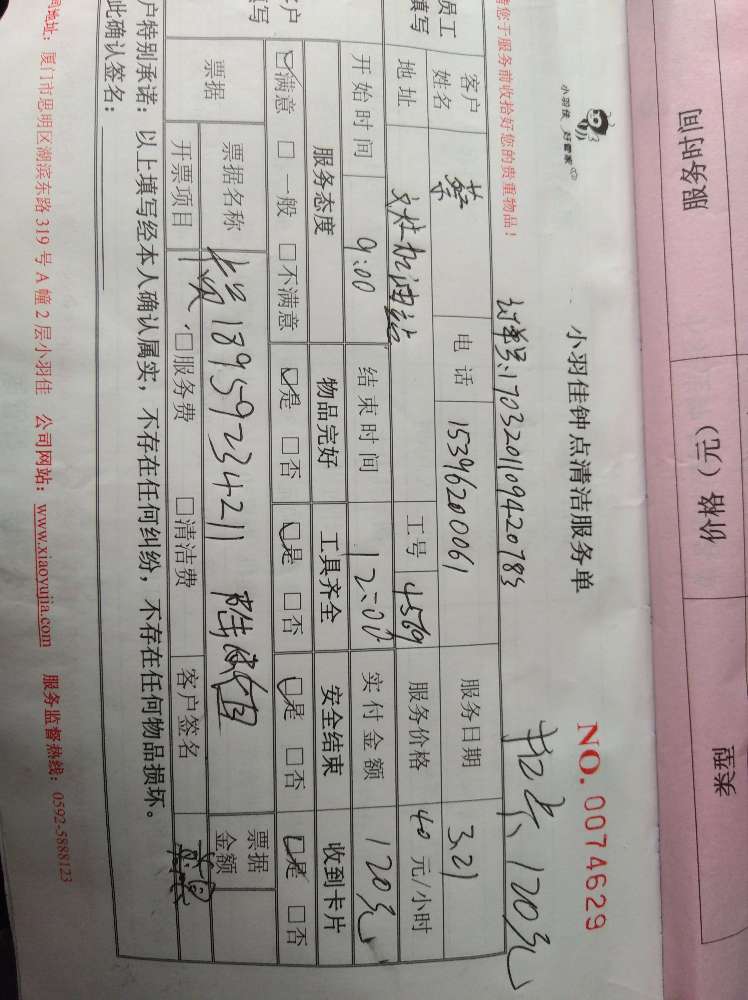 服务时间 价格（元） 类型
小羽佳 好管家
小羽佳钟点清洁服务单
NO. 0074629
请您于服务前收拾好您的贵重物品！
订单号:1703201109420783
扣卡、120元
员工填写
客户姓名 蔡 电话 15396200061 服务日期 3.21
地址 文灶加油站 工号 4569 服务价格 40 元/小时
开始时间 9:00 结束时间 12:00 实付金额 120元
客户填写
服务态度 物品完好 工具齐全 安全结束 收到卡片
☑满意 □一般 □不满意 ☑是 □否 ☑是 □否 ☑是 □否 ☑是 □否
票据 票据名称 18959234211 票据金额
开票项目 □服务费 □清洁费 客户签名
户特别承诺：以上填写经本人确认属实，不存在任何纠纷，不存在任何物品损坏。
此确认签名：
司地址：厦门市思明区湖滨东路 319 号 A 幢 2 层小羽佳 公司网站：www.xiaoyujia.com 服务监督热线：0592-5888123